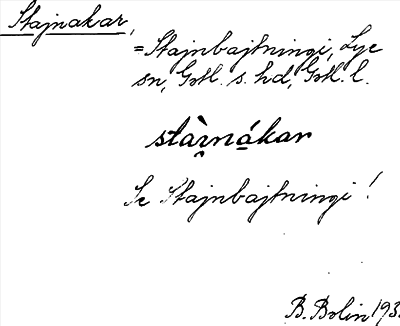 Stajnakar,
=Stajnbajtningi, Lye
sn, Gotl. s. hd, Gotl. l.
stàrnákar
Se Stajnbajtningi!
B. Bolin 193